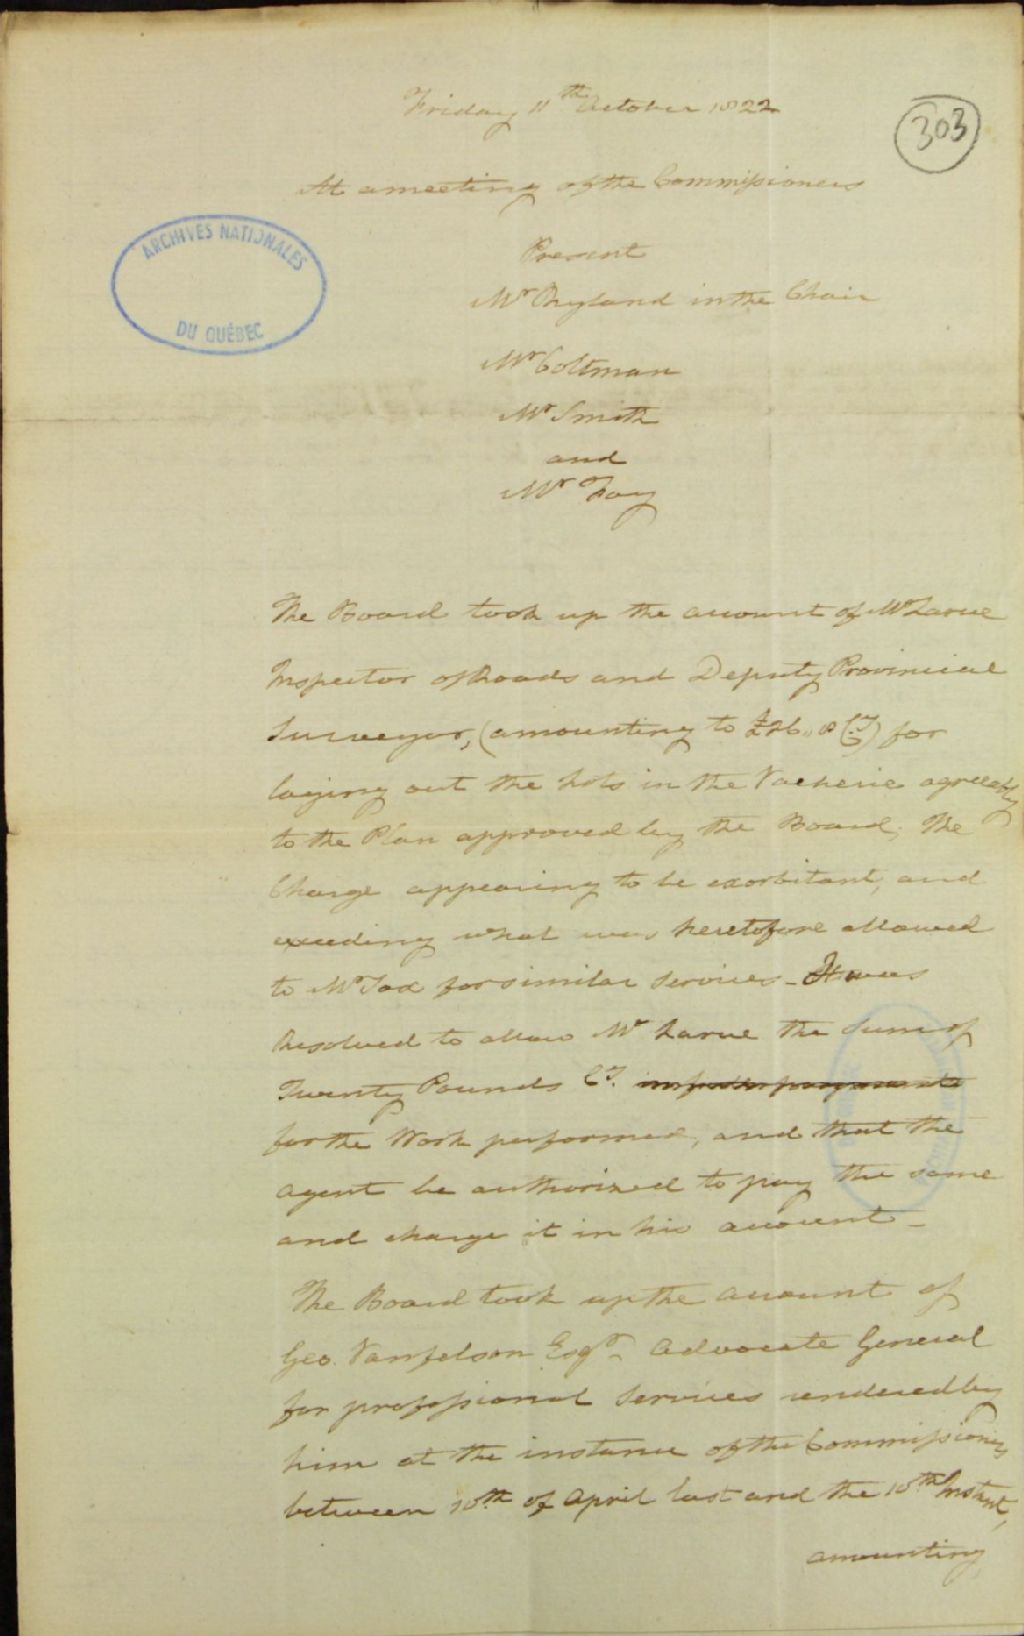 Friday 11th October 1822
303
At a meeting of the Commissioners
ARCHIVES NATIONALES
DU QUÉBEC
Present
Mr Ryland in the Chair
Mr Coltman
Mr Smith
and
Mr Foy
The Board took up the account of Mr Larue
Inspector of Roads and Deputy Provincial
Surveyor, (amounting to £26,, 8 Cy) for
laying out the Lots in the Vacherie agreeably
to the Plan approved by the Board; The
Charge appearing to be exorbitant, and
exceeding what was heretofore allowed
to Mr Sax for similar services - It was
Resolved to allow Mr Larue the Sum of
Twenty Pounds Cy.
for the Work performed, and that the
agent be authorized to pay the same
and charge it in his account -
The Board took up the account of
Geo. Vanfelson Esqr. Advocate General
for professional services rendered by
him at the instance of the Commissioners
between 10th of April last and the 10th Instant,
amounting